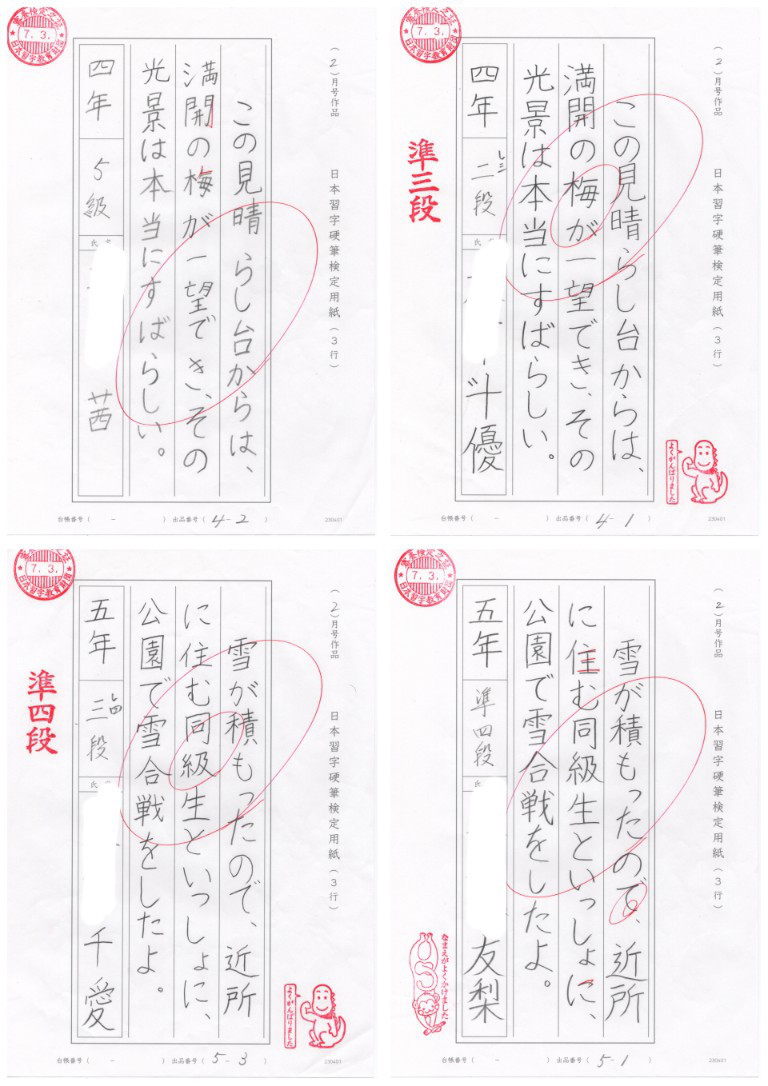 7.3.
日本習字教育財団
(2)月号作品
日本習字硬筆検定用紙(3行)
この見晴らし台からは、
満開の梅が一望でき、その
光景は本当にすばらしい。
四年
5級
茜
台帳番号( - )
出品番号( 4-2 )
230401
7.3.
日本習字教育財団
(2)月号作品
日本習字硬筆検定用紙(3行)
この見晴らし台からは、
満開の梅が一望でき、その
光景は本当にすばらしい。
四年
二段
優
準三段
よくがんばりました
台帳番号( - )
出品番号( 4-1 )
230401
7.3.
日本習字教育財団
(2)月号作品
日本習字硬筆検定用紙(3行)
雪が積もったので、近所
に住む同級生といっしょに、
公園で雪合戦をしたよ。
五年
三段
千愛
準四段
よくがんばりました
台帳番号( - )
出品番号( 5-3 )
230401
7.3.
日本習字教育財団
(2)月号作品
日本習字硬筆検定用紙(3行)
雪が積もったので、近所
に住む同級生といっしょに、
公園で雪合戦をしたよ。
五年
準四段
友梨
なまえがよくかけました
台帳番号( - )
出品番号( 5-1 )
230401